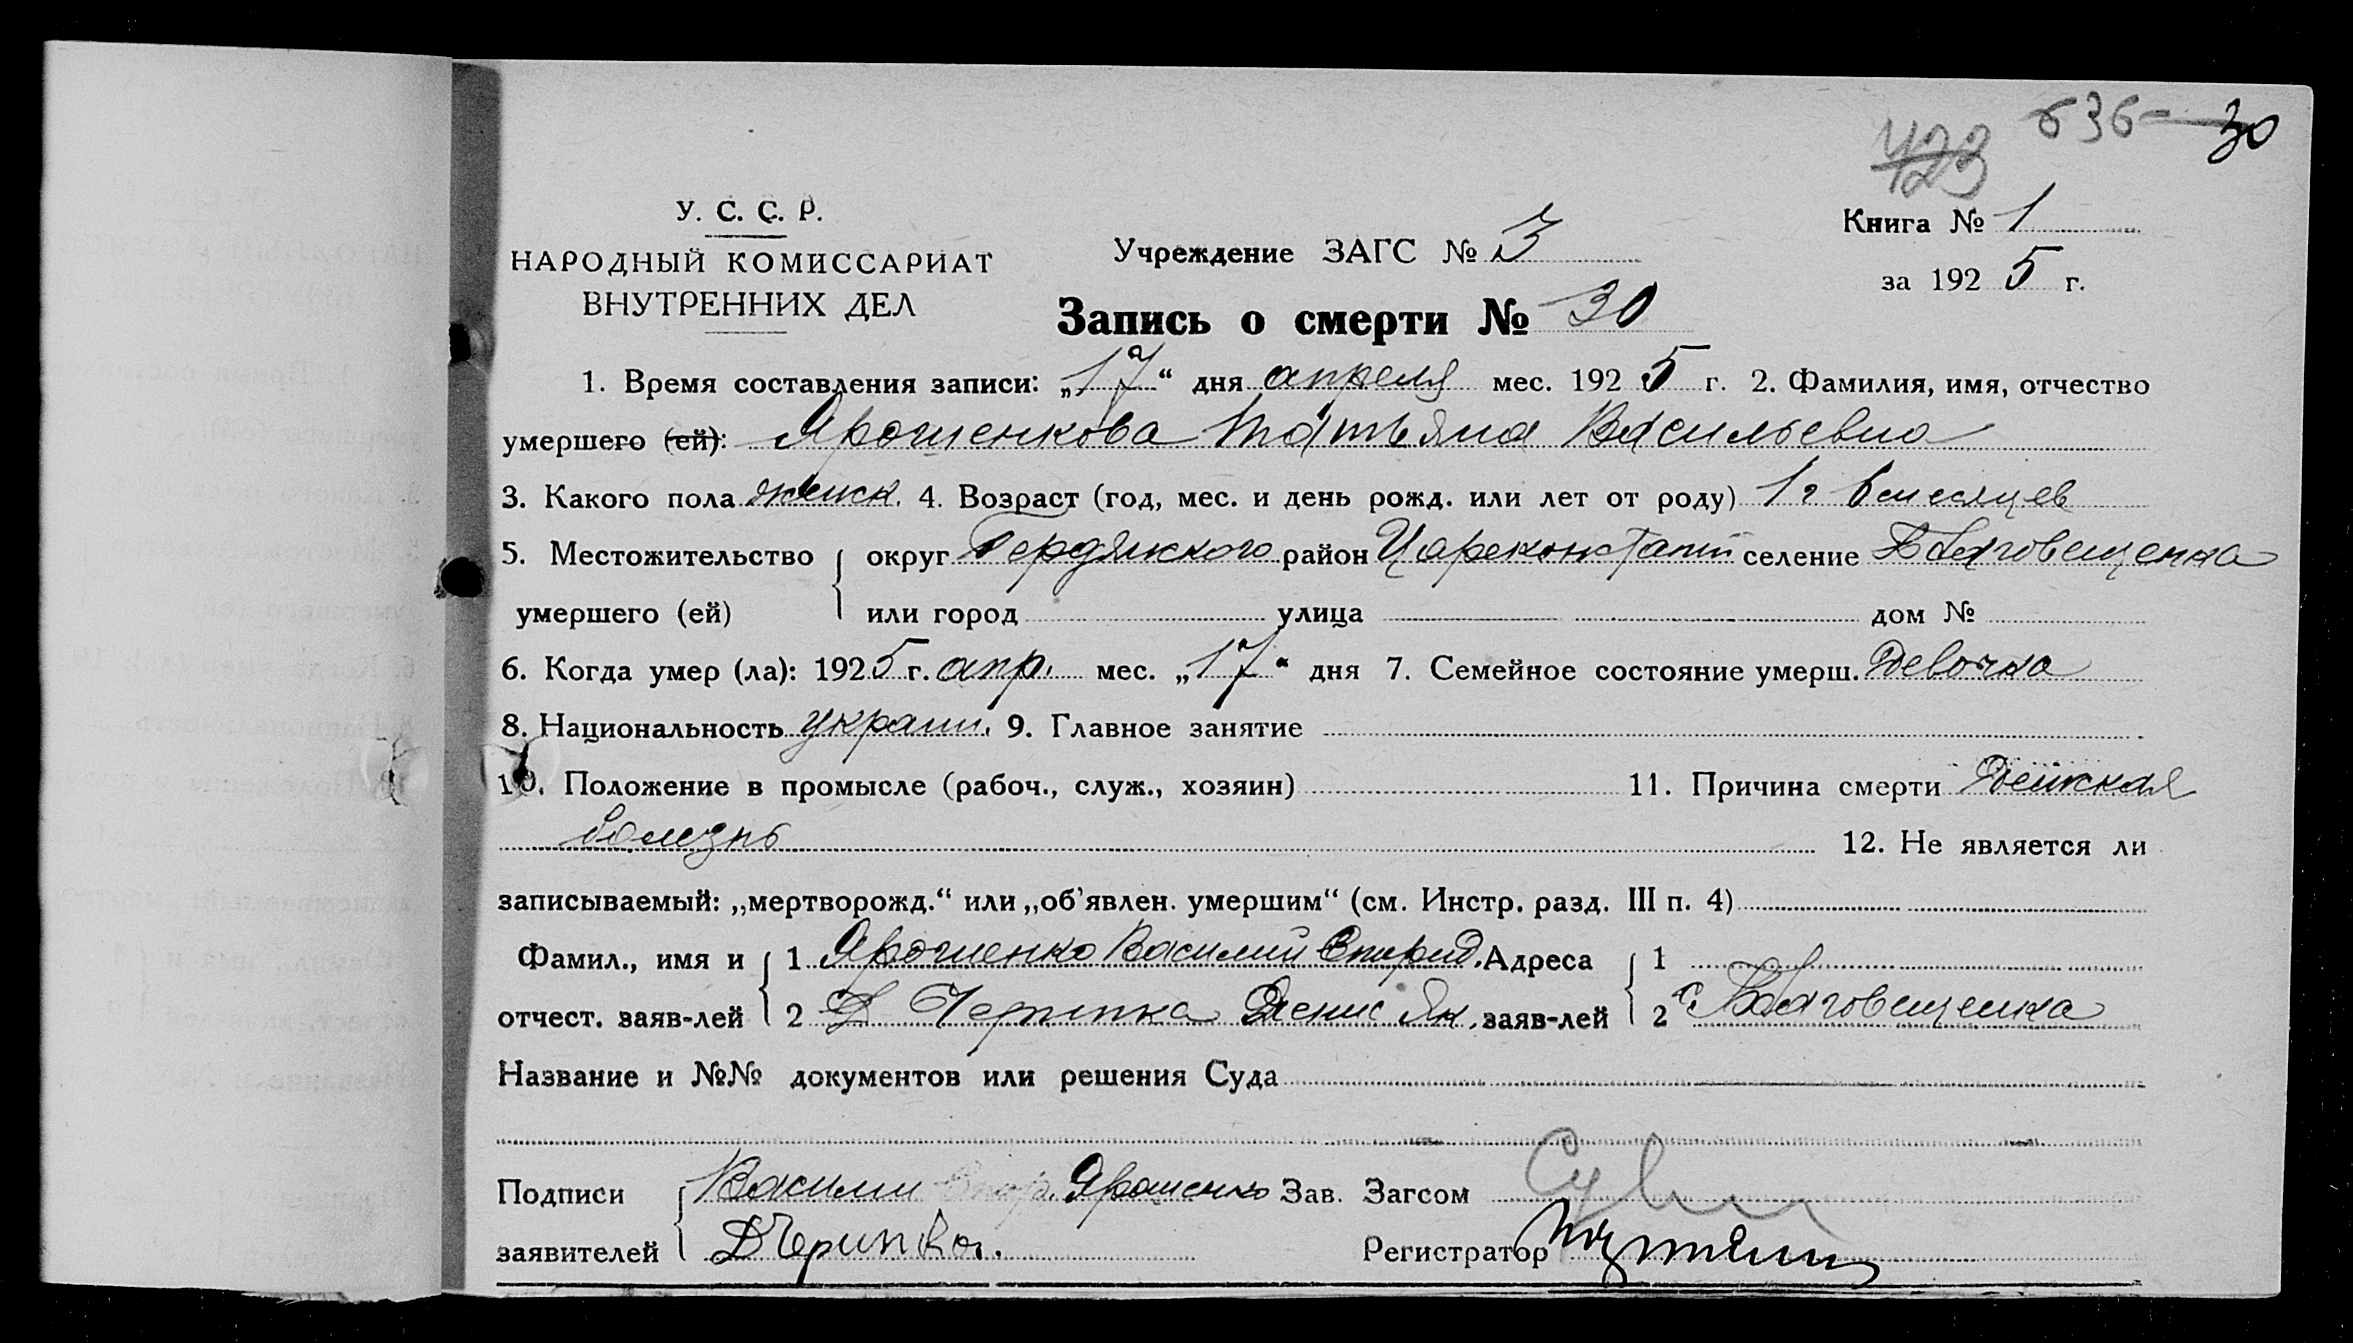 423 636 — 30
У. С. С. Р.
НАРОДНЫЙ КОМИССАРИАТ
ВНУТРЕННИХ ДЕЛ
Учреждение ЗАГС № 3
Книга № 1
за 1925 г.
Запись о смерти № 30
1. Время составления записи: „17“ дня апреля мес. 1925 г. 2. Фамилия, имя, отчество
умершего (ей): Ярошенкова Татьяна Васильевна
3. Какого пола женск. 4. Возраст (год, мес. и день рожд. или лет от роду) 1 г 6 месяцев
5. Местожительство округ Бердянского район Цареконстант селение Благовещенка
умершего (ей) или город улица дом №
6. Когда умер (ла): 1925 г. апр. мес. „17“ дня 7. Семейное состояние умерш. Девочка
8. Национальность украин. 9. Главное занятие
10. Положение в промысле (рабоч., служ., хозяин) 11. Причина смерти Детская
болезнь 12. Не является ли
записываемый: „мертворожд.“ или „об'явлен. умершим“ (см. Инстр. разд. III п. 4)
Фамил., имя и 1 Ярошенко Василий Спирид. Адреса 1
отчест. заяв-лей 2 Черипка Денис Як. заяв-лей 2 с. Благовещенка
Название и №№ документов или решения Суда
Подписи Василий Спир. Ярошенко Зав. Загсом
заявителей Д Черипка. Регистратор